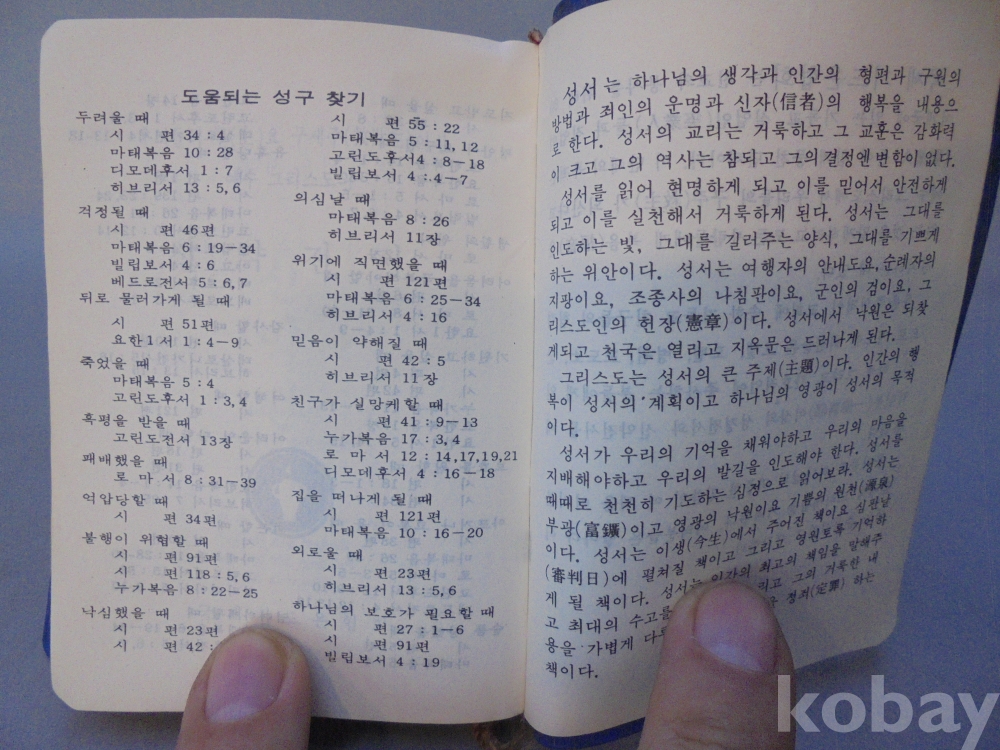 도움되는 성구 찾기
두려울 때
시 편 34 : 4
마태복음 10 : 28
디모데후서 1 : 7
히브리서 13 : 5, 6
걱정될 때
시 편 46편
마태복음 6 : 19-34
빌립보서 4 : 6
베드로전서 5 : 6, 7
뒤로 물러가게 될 때
시 편 51편
요한1서 1 : 4-9
죽었을 때
마태복음 5 : 4
고린도후서 1 : 3, 4
혹평을 받을 때
고린도전서 13장
패배했을 때
로 마 서 8 : 31-39
억압당할 때
시 편 34편
불행이 위협할 때
시 편 91편
시 편 118 : 5, 6
누가복음 8 : 22-25
낙심했을 때
시 편 23편
시 편 42 :
시 편 55 : 22
마태복음 5 : 11, 12
고린도후서 4 : 8-18
빌립보서 4 : 4-7
의심날 때
마태복음 8 : 26
히브리서 11장
위기에 직면했을 때
시 편 121편
마태복음 6 : 25-34
히브리서 4 : 16
믿음이 약해질 때
시 편 42 : 5
히브리서 11장
친구가 실망케할 때
시 편 41 : 9-13
누가복음 17 : 3, 4
로 마 서 12 : 14,17,19,21
디모데후서 4 : 16-18
집을 떠나게 될 때
시 편 121편
마태복음 10 : 16-20
외로울 때
시 편 23편
히브리서 13 : 5, 6
하나님의 보호가 필요할 때
시 편 27 : 1-6
시 편 91편
빌립보서 4 : 19
성서는 하나님의 생각과 인간의 형편과 구원의
방법과 죄인의 운명과 신자(信者)의 행복을 내용으
로 한다. 성서의 교리는 거룩하고 그 교훈은 감화력
이 크고 그의 역사는 참되고 그의 결정엔 변함이 없다.
성서를 읽어 현명하게 되고 이를 믿어서 안전하게
되고 이를 실천해서 거룩하게 된다. 성서는 그대를
인도하는 빛, 그대를 길러주는 양식, 그대를 기쁘게
하는 위안이다. 성서는 여행자의 안내도요, 순례자의
지팡이요, 조종사의 나침판이요, 군인의 검이요, 그
리스도인의 헌장(憲章)이다. 성서에서 낙원은 되찾
게되고 천국은 열리고 지옥문은 드러나게 된다.
그리스도는 성서의 큰 주제(主題)이다. 인간의 행
복이 성서의 계획이고 하나님의 영광이 성서의 목적
이다.
성서가 우리의 기억을 채워야하고 우리의 마음을
지배해야하고 우리의 발길을 인도해야 한다. 성서를
때때로 천천히 기도하는 심정으로 읽어보라. 성서는
부광(富鑛)이고 영광의 낙원이요 기쁨의 원천(源泉)
이다. 성서는 이생(今生)에서 주어진 책이요 심판날
(審判日)에 펼쳐질 책이고 그리고 영원토록 기억하
게 될 책이다. 성서는 인간의 최고의 책임을 말해주
고 최대의 수고를 리고 그의 거룩한 내
용을 가볍게 다 을 정죄(定罪) 하는
책이다.
kobay